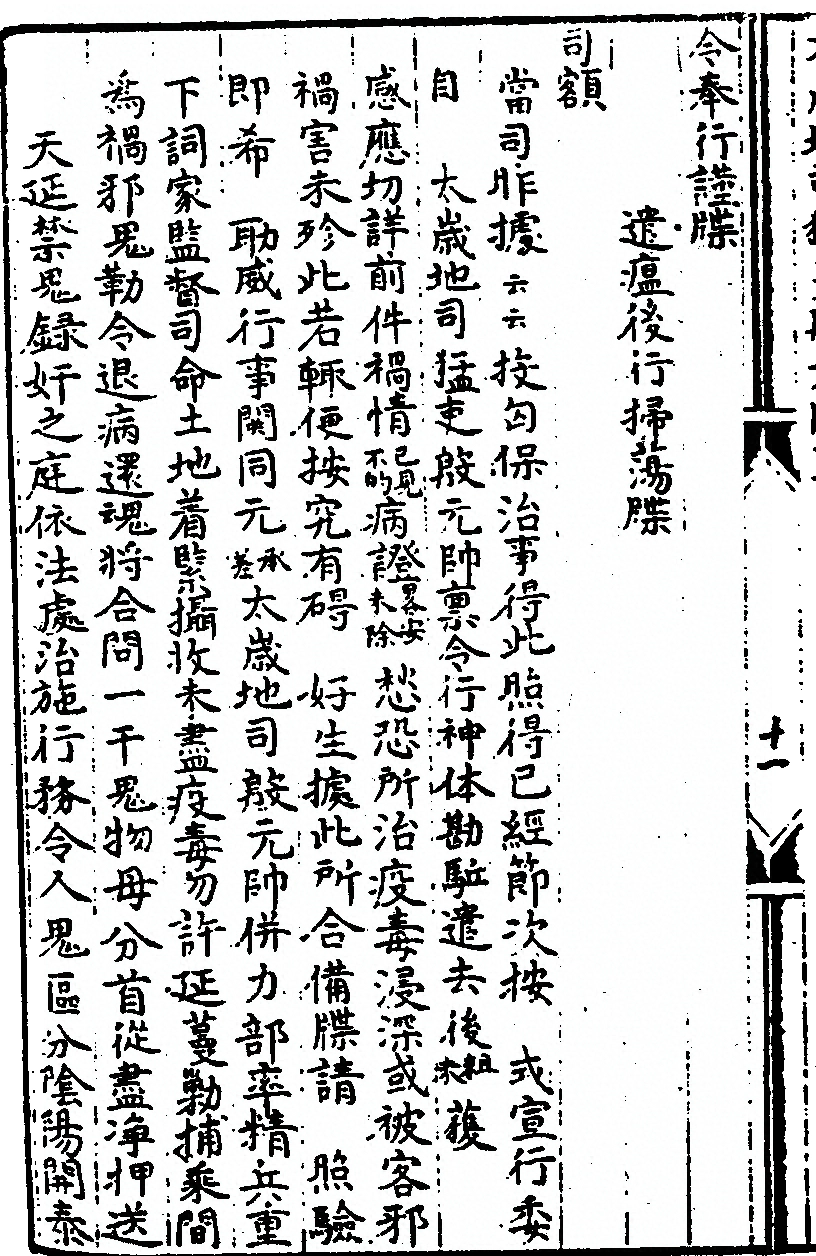 令奉行謹牒
遣瘟後行掃蕩牒
司額
當司昨據云云投匈保治事得此照得已經節次按 式宣行委
自 太歲地司猛吏殷元帥禀令行神体勘駈遣去後粗未獲
感應切詳前件禍情已見不的病證畧安未除愁恐所治疫毒浸深或被客邪
禍害未殄此若輒便按究有碍 好生據此所合備牒請 照驗
即希 助威行事関同元承差太歲地司殷元帥併力部率精兵重
下詞家監督司命土地着緊攝收未盡疫毒勿許延蔓勦捕乘間
爲禍邪鬼勒令退病還魂將合問一干鬼物毋分首從盡净押送
天延禁鬼録奸之庭依法處治施行務令人鬼區分陰陽開泰
十一